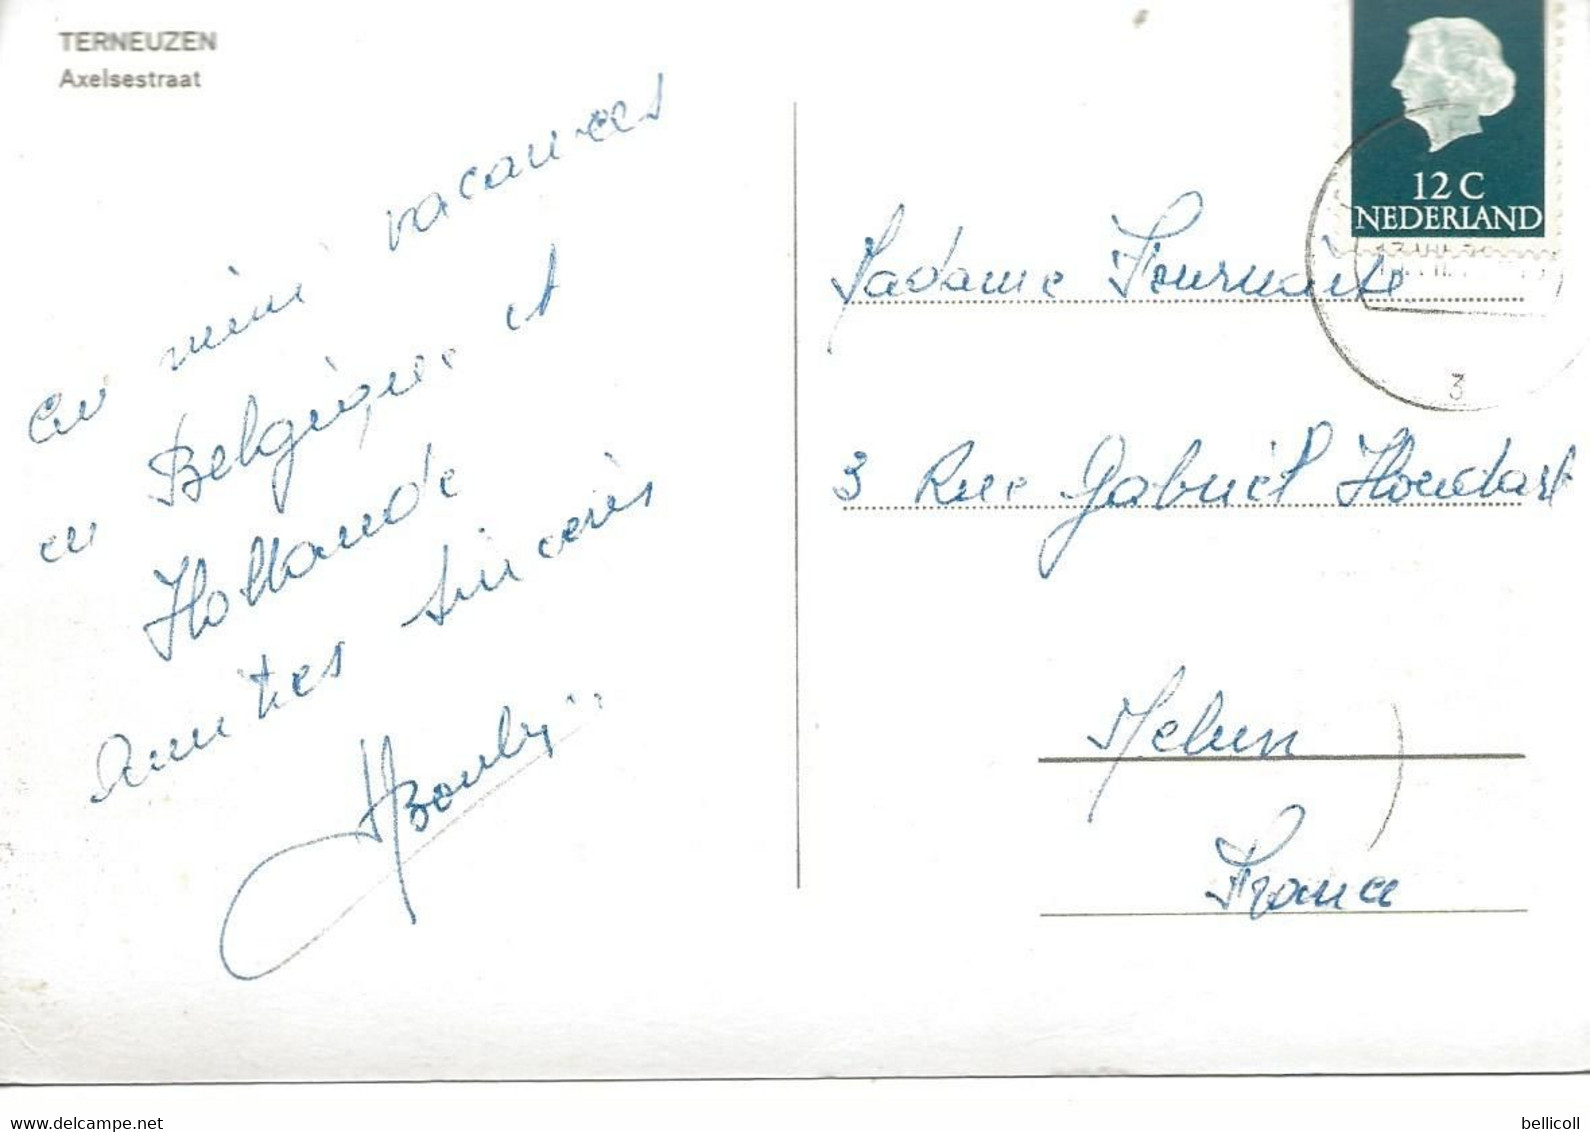 TERNEUZEN
Axelsestraat
En mini vacances
en Belgique et
Hollande
Amitiés sincères
12 C
NEDERLAND
3
Madame
3 Rue Gabriel Houdart
Melun
France
www.delcampe.net
bellicoll